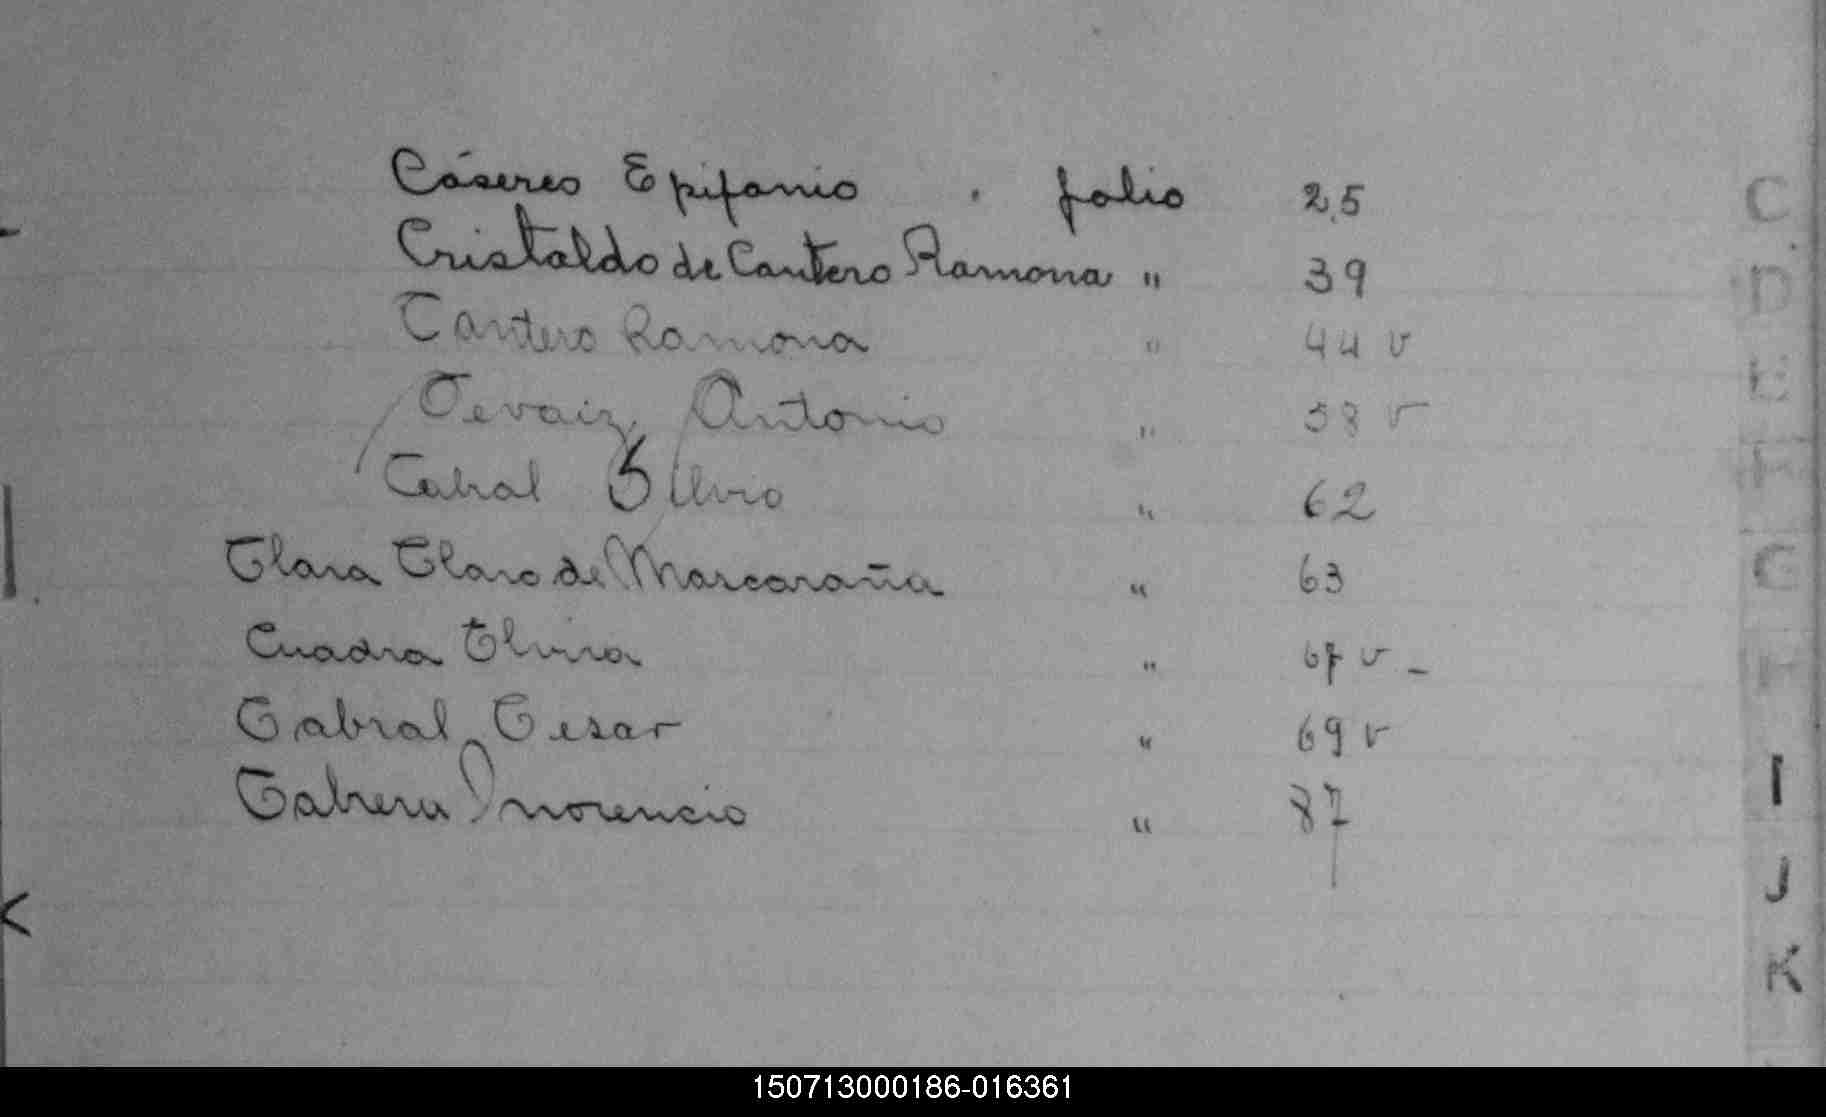 Cáseres Epifanio . folio 25
Cristaldo de Cantero Ramona " 39
Cantero Ramona " 44 v
Antonio " 58 v
Cabral Silvio " 62
Clara Claro de Marcaraña " 63
Cuadra Elvira " 67 v -
Cabral Cesar " 69 v
Cabrera Inorencio " 87
C
D
E
F
G
H
I
J
K
150713000186-016361